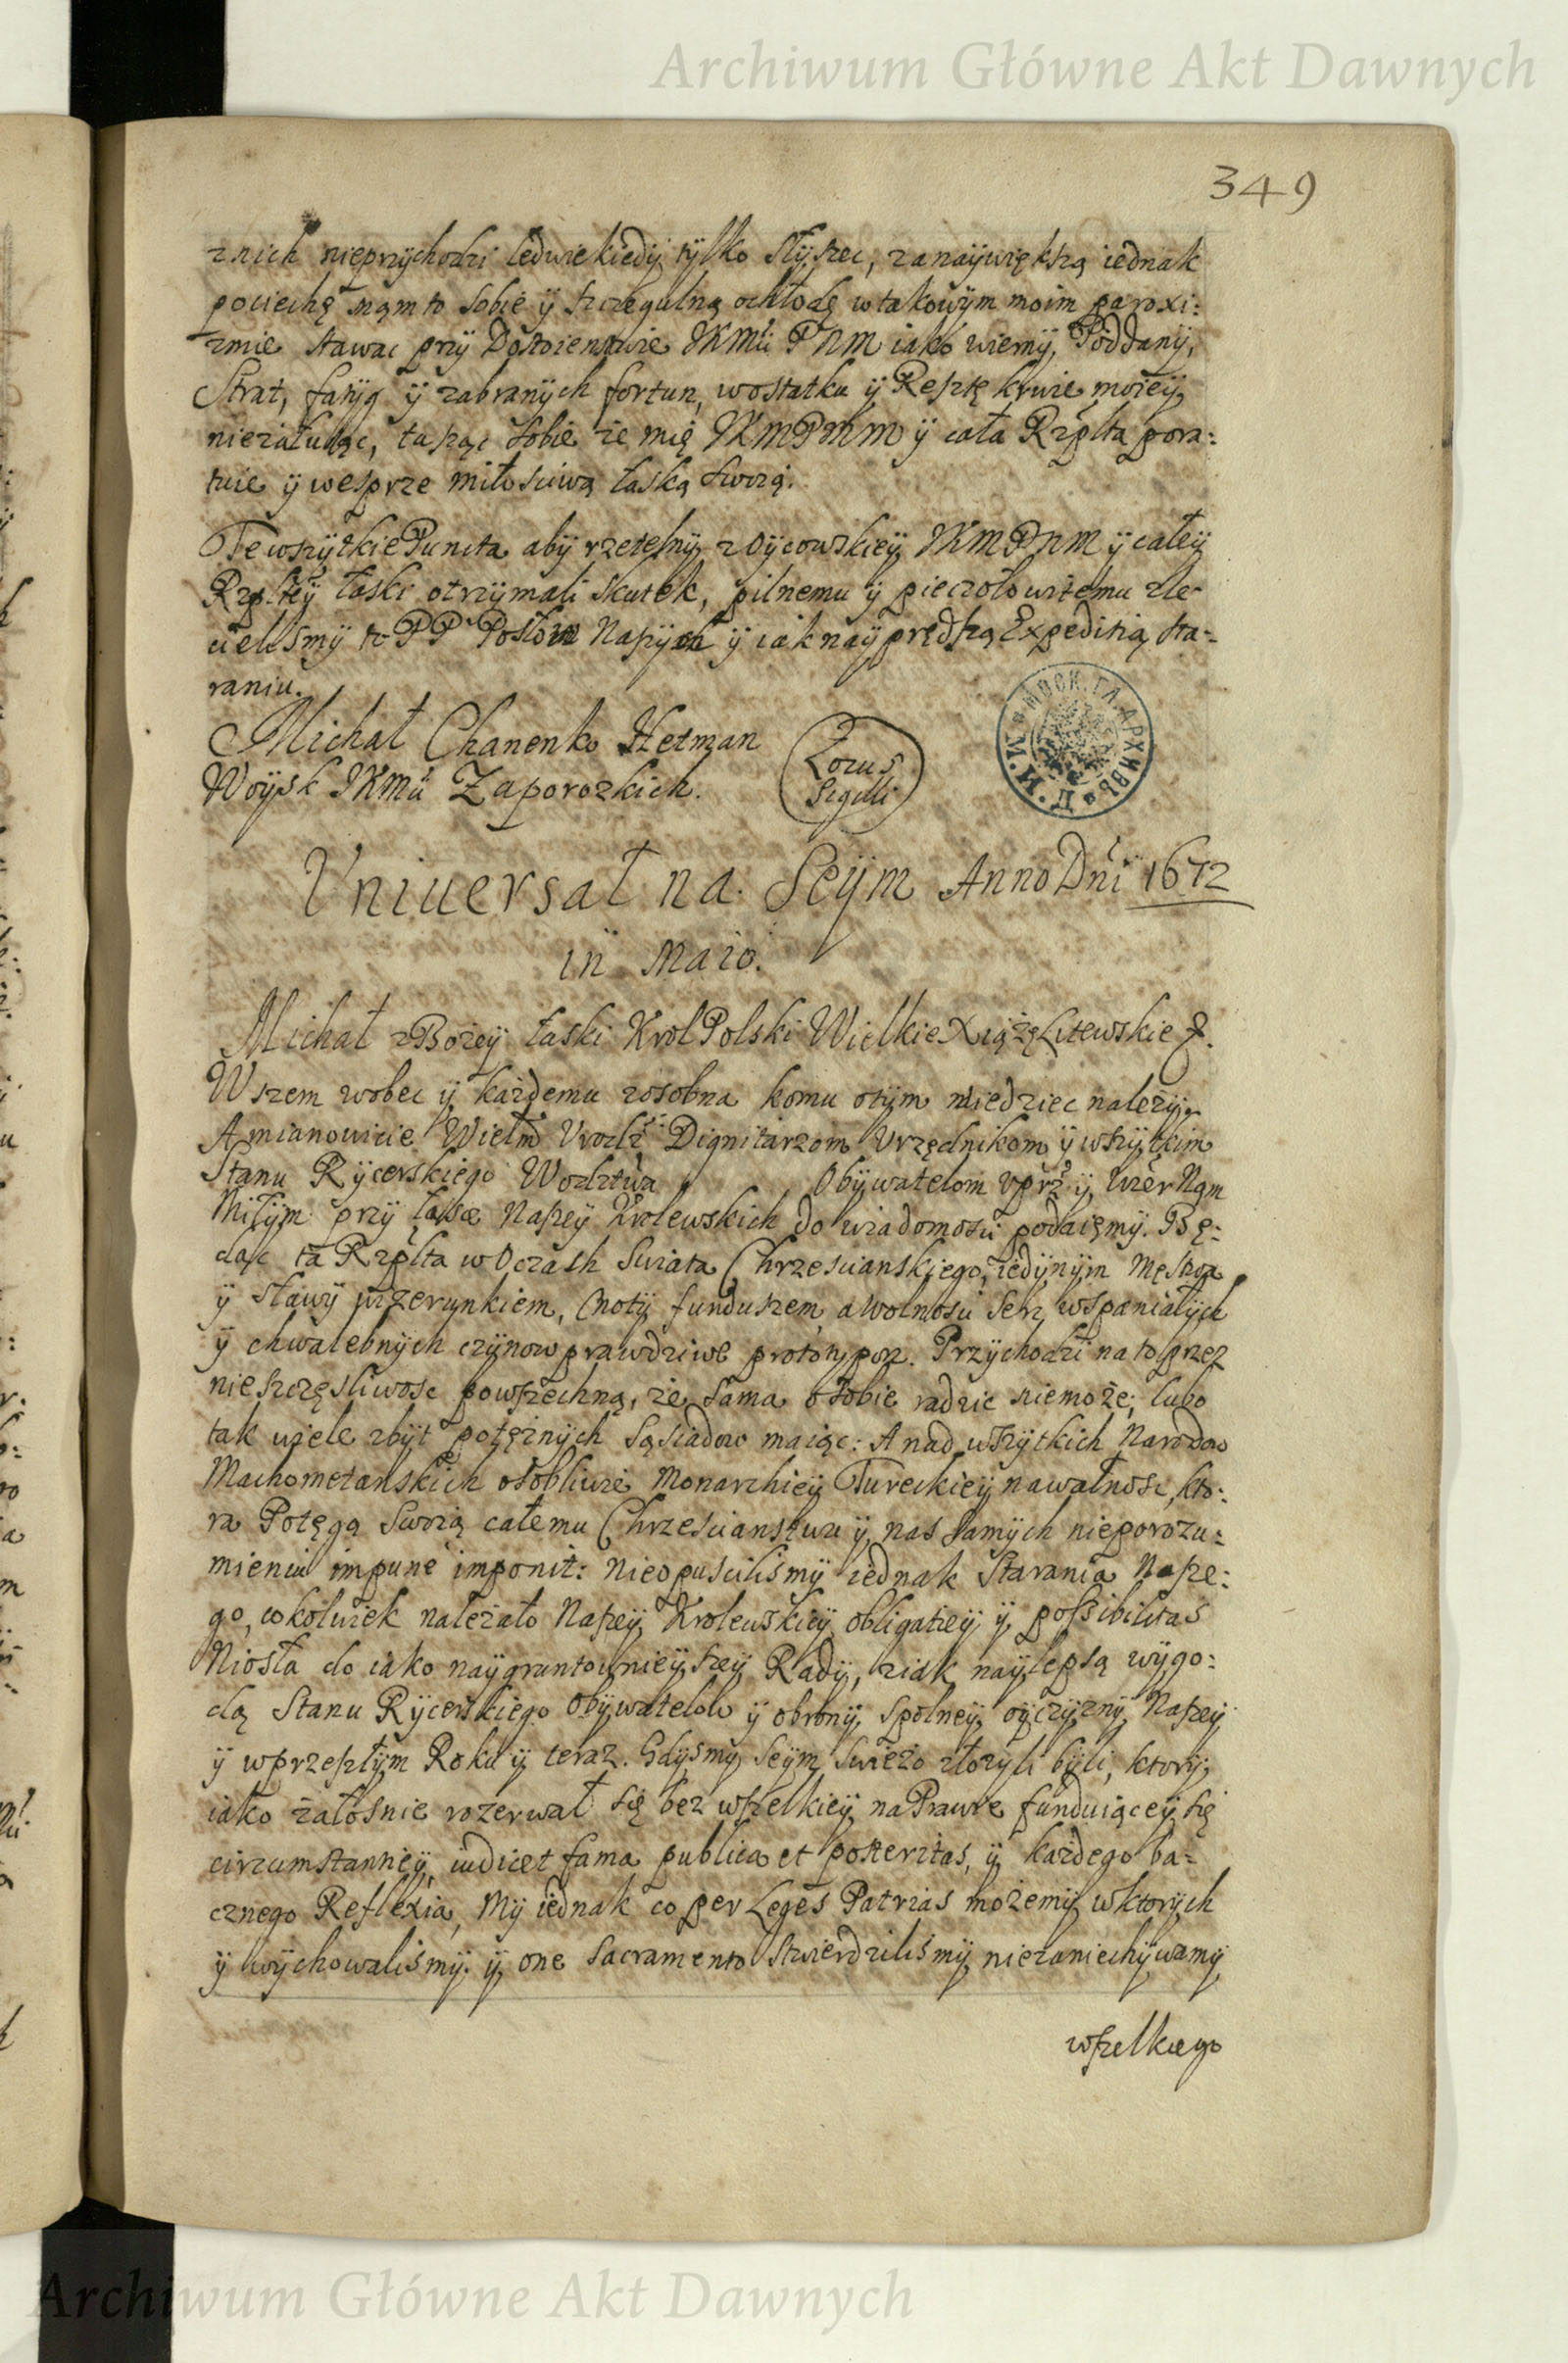 Archiwum Główne Akt Dawnych
349
znich nieprzychodzi ledwiekiedÿ tÿlko słÿszec, zanaÿwiększą iednak
pociechę mąm to sobie ÿ szczegulną ochłodę wtakowÿm moim paroxi:
zmie stawac przÿ Dostoienstwie JKMći PNM iako wiernÿ Poddanÿ,
Strat, fatÿg ÿ zabranÿch fortun, wostatku ÿ Resztę krwie moieÿ
nieżałuiąc, tusząc sobie że mię JKMPNM ÿ cała Rzplta pora:
tuie ÿ wesprze miłosciwą łaską swoią.
Tewszÿtkie Puncta abÿ rzetelnÿ z Oÿcowskieÿ JKMPNM ÿ całeÿ
Rzplteÿ łaski otrzÿmali skutek, pilnemu ÿ pieczołowitemu zle
cielismÿ to PP Posłow Naszÿch ÿ iak naÿprędszą Expeditią sta:
raniu.
Michał Chanenko Hetman
Woÿsk JKMći Zaporozkich.
Locus
Sigilli
МОСК. ГЛ. АРХИВЪ
М. И. Д.
Vniuersał na Seÿm Anno Dni 1672
in Maio.
Michał z Bożeÿ łaski Krol Polski Wielkie Xiążę Litewskie &.
Wszem wobec ÿ każdemu zosobna komu otÿm wiedziec należÿ
Amianowicie Wielm Vrodz Dignitarzom Vrzędnikom ÿ wszÿtkim
Stanu Rÿcerskiego Wodztwa Obÿwatelom vprz ÿ wier Nąm
Miłÿm przÿ łasce Naszeÿ Krolewskieh do wiadomosci podaięmÿ. Bę:
dąc ta Rzplta w Oczach Swiata Chrzescianskiego, iedÿnÿm Męstwa
ÿ sławÿ wizerunkiem, Cnotÿ funduszem, a wolnosci serz wspaniałÿch
ÿ chwalebnÿch czÿnow prawdziwe prototypon. Przÿchodzi na to przez
nieszczęsliwosc powszechną, że sama osobie radzic niemoże; lubo
tak wiele zbÿt potężnÿch sąsiadow maiąc: A nad wszÿtkich Narodow
Machometanskich osobliwie Monarchieÿ Tureckieÿ nawałnosc, kto:
ra Potęgą Swoią całemu Chrzescianstwu ÿ nas samÿch nieporozu:
mieniu impune imponit: Nieopuscilismÿ iednak Starania Nasze:
go, cokolwiek należało Naszeÿ Krolewskieÿ obligatieÿ ÿ possibilitas
Niosła do iako naÿgruntownieÿszeÿ Radÿ, ziak naÿlepsą wÿgo:
dą Stanu Rÿcerskiego Obÿwatelow ÿ obronÿ spolneÿ oÿczÿznÿ Naszeÿ
ÿ wprzeszłÿm Roku ÿ teraz. Gdÿsmÿ Seÿm swieżo złożÿli bÿli, ktorÿ
iako żałosnie rozerwał się bez wszelkieÿ na Prawie funduiąceÿ się
circumstantieÿ, iudicet fama publica et posteritas, ÿ każdego ba:
cznego Reflexia, Mÿ iednak co per Leges Patrias możemÿ wktorÿch
ÿ wÿchowalismÿ ÿ one sacramento stwierdzilismÿ niezaniechÿwamÿ
wszelkiego
Archiwum Główne Akt Dawnych